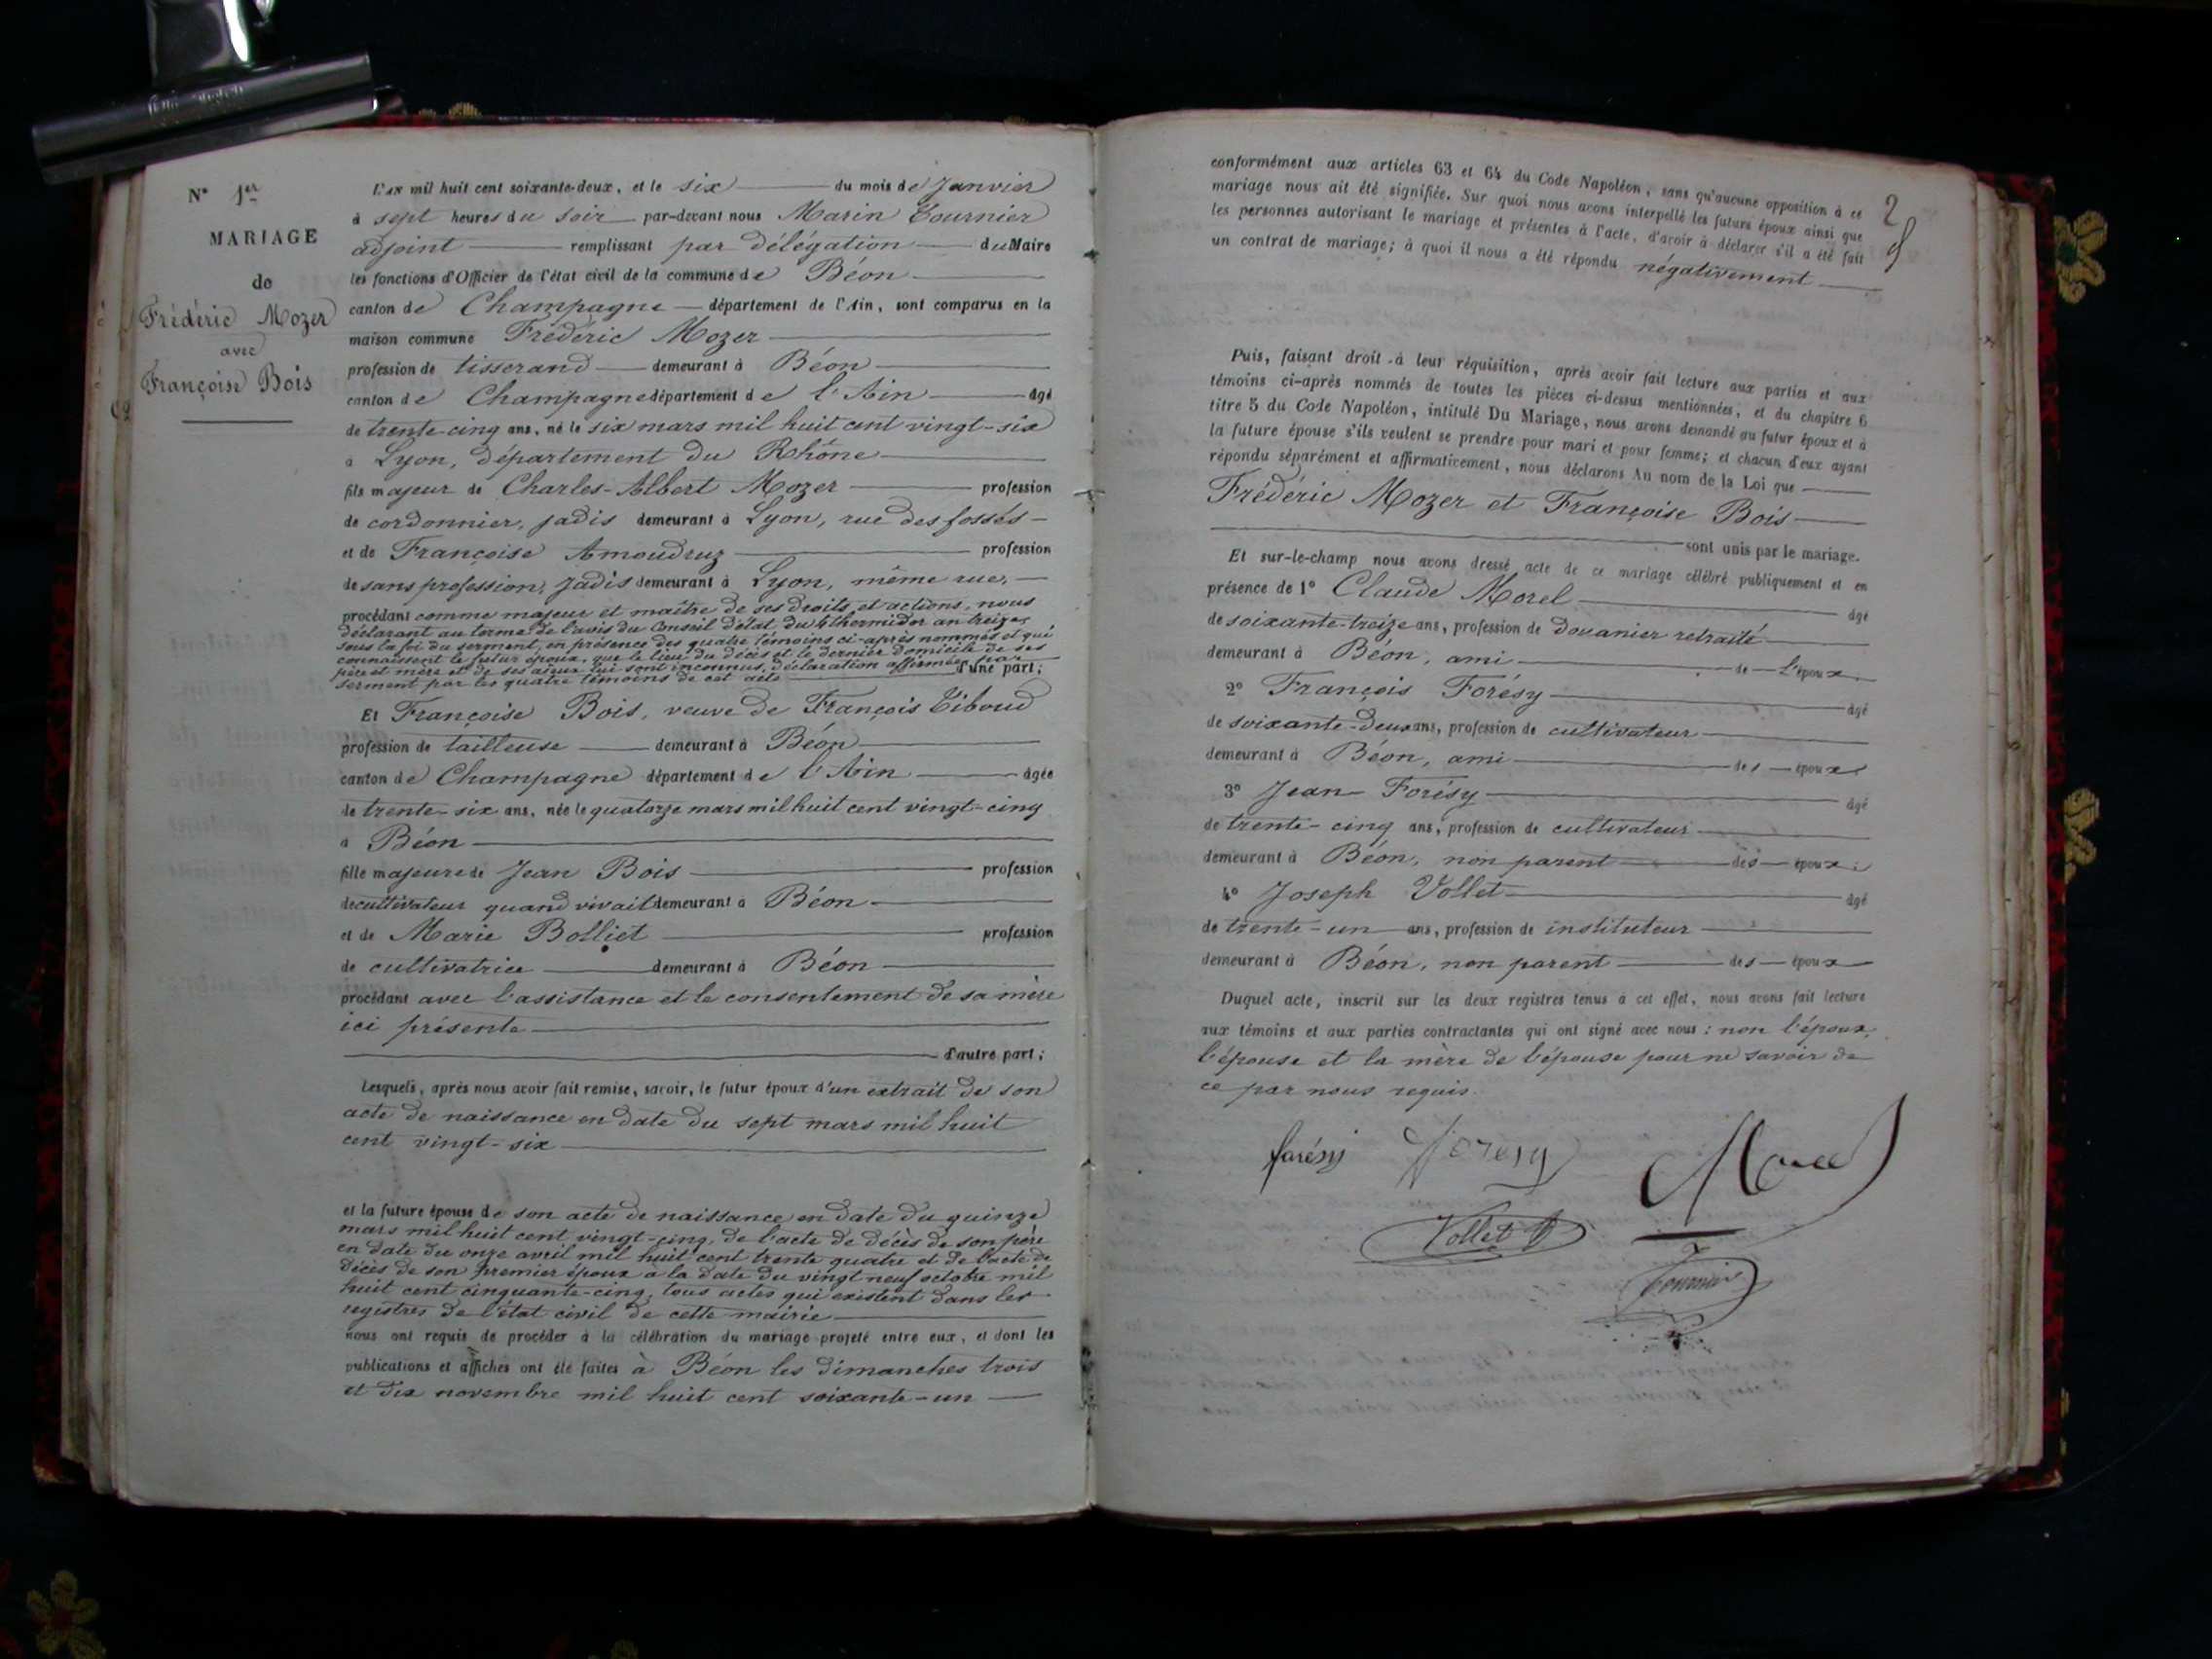 N° 1er
MARIAGE
de
Frédéric Mozer
avec
Françoise Bois
L'an mil huit cent soixante-deux, et le six du mois de Janvier
à sept heures du soir par-devant nous Marin Tournier
adjoint remplissant par délégation du Maire
les fonctions d'Officier de l'état civil de la commune de Béon
canton de Champagne département de l'Ain, sont comparus en la
maison commune Frédéric Mozer
profession de tisserand demeurant à Béon
canton de Champagne département de l'Ain âgé
de trente-cinq ans, né le six mars mil huit cent vingt-six
à Lyon, département du Rhône
fils majeur de Charles-Albert Mozer profession
de cordonnier, jadis demeurant à Lyon, rue des fossés
et de Françoise Amoudruz profession
de sans profession, jadis demeurant à Lyon, même rue,
procédant comme majeur et maître de ses droits et actions, nous
déclarant au terme de l'avis du Conseil d'état du 4 thermidor an treize,
sous la foi du serment, en présence des quatre témoins ci-après nommés et qui
connaissent le futur époux, que le lieu du décès et le dernier domicile de ses
père et mère et de ses aïeux lui sont inconnus, déclaration affirmée par
serment par les quatre témoins de cet acte d'une part;
Et Françoise Bois, veuve de François Tiboud
profession de tailleuse demeurant à Béon
canton de Champagne département de l'Ain âgée
de trente-six ans, née le quatorze mars mil huit cent vingt-cinq
à Béon
fille majeure de Jean Bois profession
de cultivateur quand vivait demeurant à Béon
et de Marie Bolliet profession
de cultivatrice demeurant à Béon
procédant avec l'assistance et le consentement de sa mère
ici présente
d'autre part;
Lesquels, après nous avoir fait remise, savoir, le futur époux d'un extrait de son
acte de naissance en date du sept mars mil huit
cent vingt-six
et la future épouse de son acte de naissance en date du quinze
mars mil huit cent vingt-cinq, de l'acte de décès de son père
en date du onze avril mil huit cent trente quatre et de l'acte de
décès de son premier époux à la date du vingt neuf octobre mil
huit cent cinquante-cinq, tous actes qui existent dans les
registres de l'état civil de cette mairie
nous ont requis de procéder à la célébration du mariage projeté entre eux, et dont les
publications et affiches ont été faites à Béon les dimanches trois
et dix novembre mil huit cent soixante-un
2
conformément aux articles 63 et 64 du Code Napoléon, sans qu'aucune opposition à ce
mariage nous ait été signifiée. Sur quoi nous avons interpellé les futurs époux ainsi que
les personnes autorisant le mariage et présentes à l'acte, d'avoir à déclarer s'il a été fait
un contrat de mariage; à quoi il nous a été répondu négativement
Puis, faisant droit à leur réquisition, après avoir fait lecture aux parties et aux
témoins ci-après nommés de toutes les pièces ci-dessus mentionnées, et du chapitre 6
titre 5 du Code Napoléon, intitulé Du Mariage, nous avons demandé au futur époux et à
la future épouse s'ils veulent se prendre pour mari et pour femme; et chacun d'eux ayant
répondu séparément et affirmativement, nous déclarons Au nom de la Loi que
Frédéric Mozer et Françoise Bois
sont unis par le mariage.
Et sur-le-champ nous avons dressé acte de ce mariage célébré publiquement et en
présence de 1° Claude Morel âgé
de soixante-treize ans, profession de douanier retraité
demeurant à Béon, ami de l'époux
2° François Forésy âgé
de soixante-deux ans, profession de cultivateur
demeurant à Béon, ami des époux
3° Jean Forésy âgé
de trente-cinq ans, profession de cultivateur
demeurant à Béon, non parent des époux
4° Joseph Vollet âgé
de trente-un ans, profession de instituteur
demeurant à Béon, non parent des époux
Duquel acte, inscrit sur les deux registres tenus à cet effet, nous avons fait lecture
aux témoins et aux parties contractantes qui ont signé avec nous : non l'époux,
l'épouse et la mère de l'épouse pour ne savoir de
ce par nous requis.
forésy Foresy Morel
Vollet
Tournier